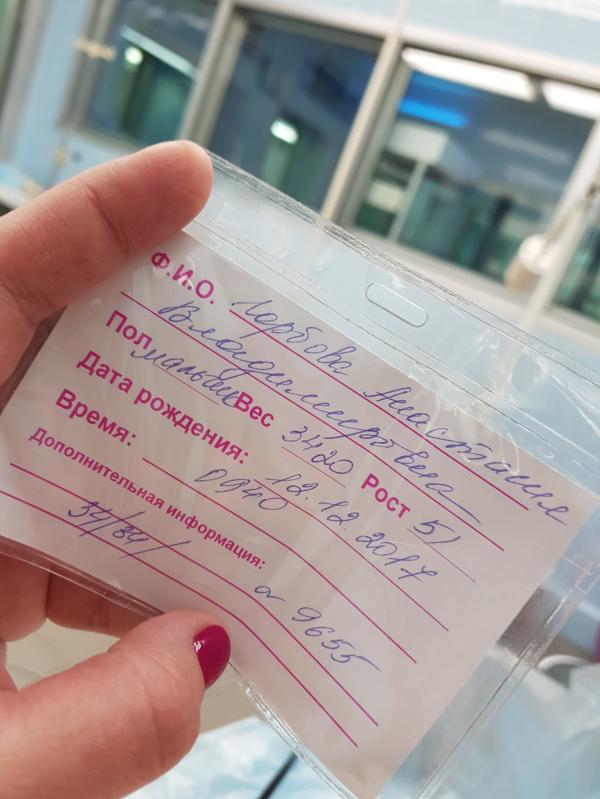 Ф.И.О. Горбова Анастасия
Владимировна
Пол мальчик Вес 3420 Рост 51
Дата рождения: 12.12.2017
Время: 0940
Дополнительная информация:
34/84/ 9655